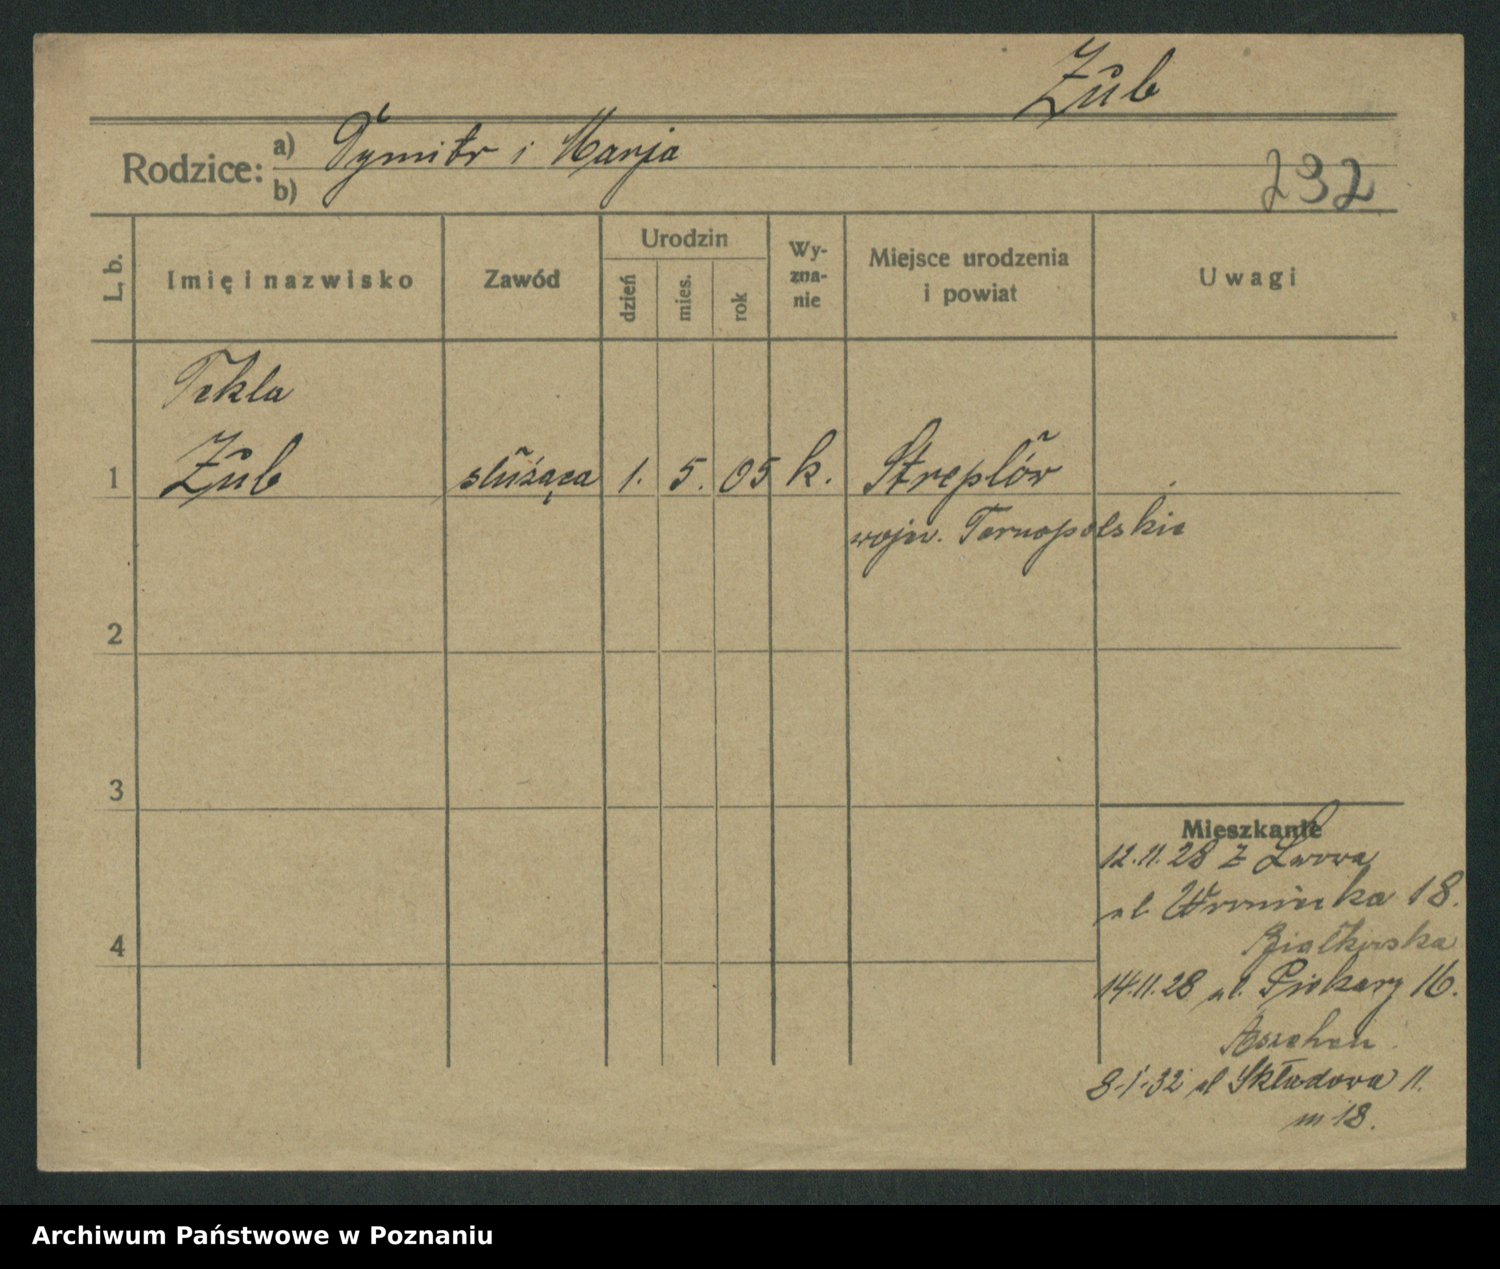 Zub
Rodzice: a) Dymitr i Marja
b)
232
L. b.
Imię i nazwisko
Zawód
Urodzin
dzień
mies.
rok
Wy-
zna-
nie
Miejsce urodzenia
i powiat
Uwagi
Tekla
1 Zub służąca 1. 5. 05 k. Streptów
wojew. Tarnopolskie
2
3
Mieszkanie
12.11.28 z Lwowa
ul. Wroniecka 18.
4
Białkowska
14.11.28 ul. Piekary 16.
8-1-32 ul Składowa 11.
m 18.
Archiwum Państwowe w Poznaniu